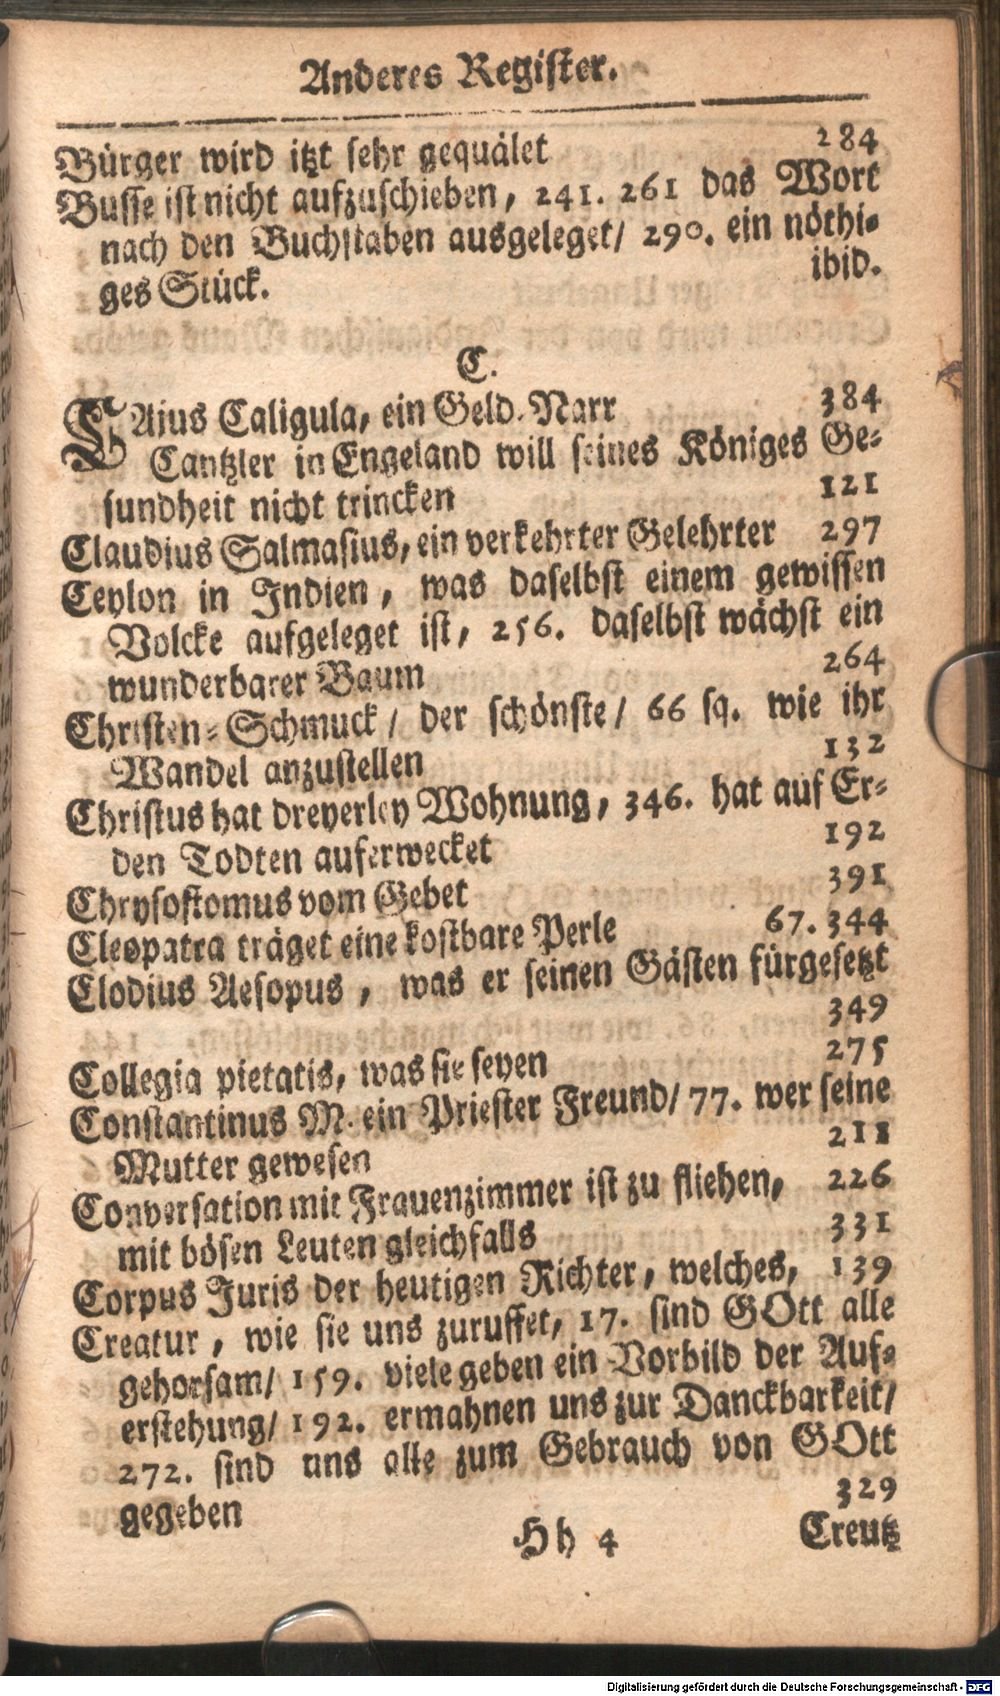 Anderes Register.
Bürger wird itzt sehr gequälet 284
Busse ist nicht aufzuschieben, 241. 261 das Wort
nach den Buchstaben ausgeleget/ 290. ein nöthi-
ges Stück. ibid.
C.
CAius Caligula, ein Geld-Narr 384
Cantzler in Engeland will seines Königes Ge-
sundheit nicht trincken 121
Claudius Salmasius, ein verkehrter Gelehrter 297
Ceylon in Indien, was daselbst einem gewissen
Volcke aufgeleget ist, 256. daselbst wächst ein
wunderbarer Baum 264
Christen-Schmuck/ der schönste/ 66 sq. wie ihr
Wandel anzustellen 132
Christus hat dreyerley Wohnung, 346. hat auf Er-
den Todten auferwecket 192
Chrysostomus vom Gebet 391
Cleopatra träget eine kostbare Perle 67. 344
Clodius Aesopus, was er seinen Gästen fürgesetzt
349
Collegia pietatis, was sie seyen 275
Constantinus M. ein Priester Freund/ 77. wer seine
Mutter gewesen 211
Conversation mit Frauenzimmer ist zu fliehen, 226
mit bösen Leuten gleichfalls 331
Corpus Juris der heutigen Richter, welches, 139
Creatur, wie sie uns zuruffet, 17. sind GOtt alle
gehorsam/ 159. viele geben ein Vorbild der Auf-
erstehung/ 192. ermahnen uns zur Danckbarkeit/
272. sind uns alle zum Gebrauch von GOtt
gegeben 329
Hh 4 Creutz
Digitalisierung gefördert durch die Deutsche Forschungsgemeinschaft - DFG